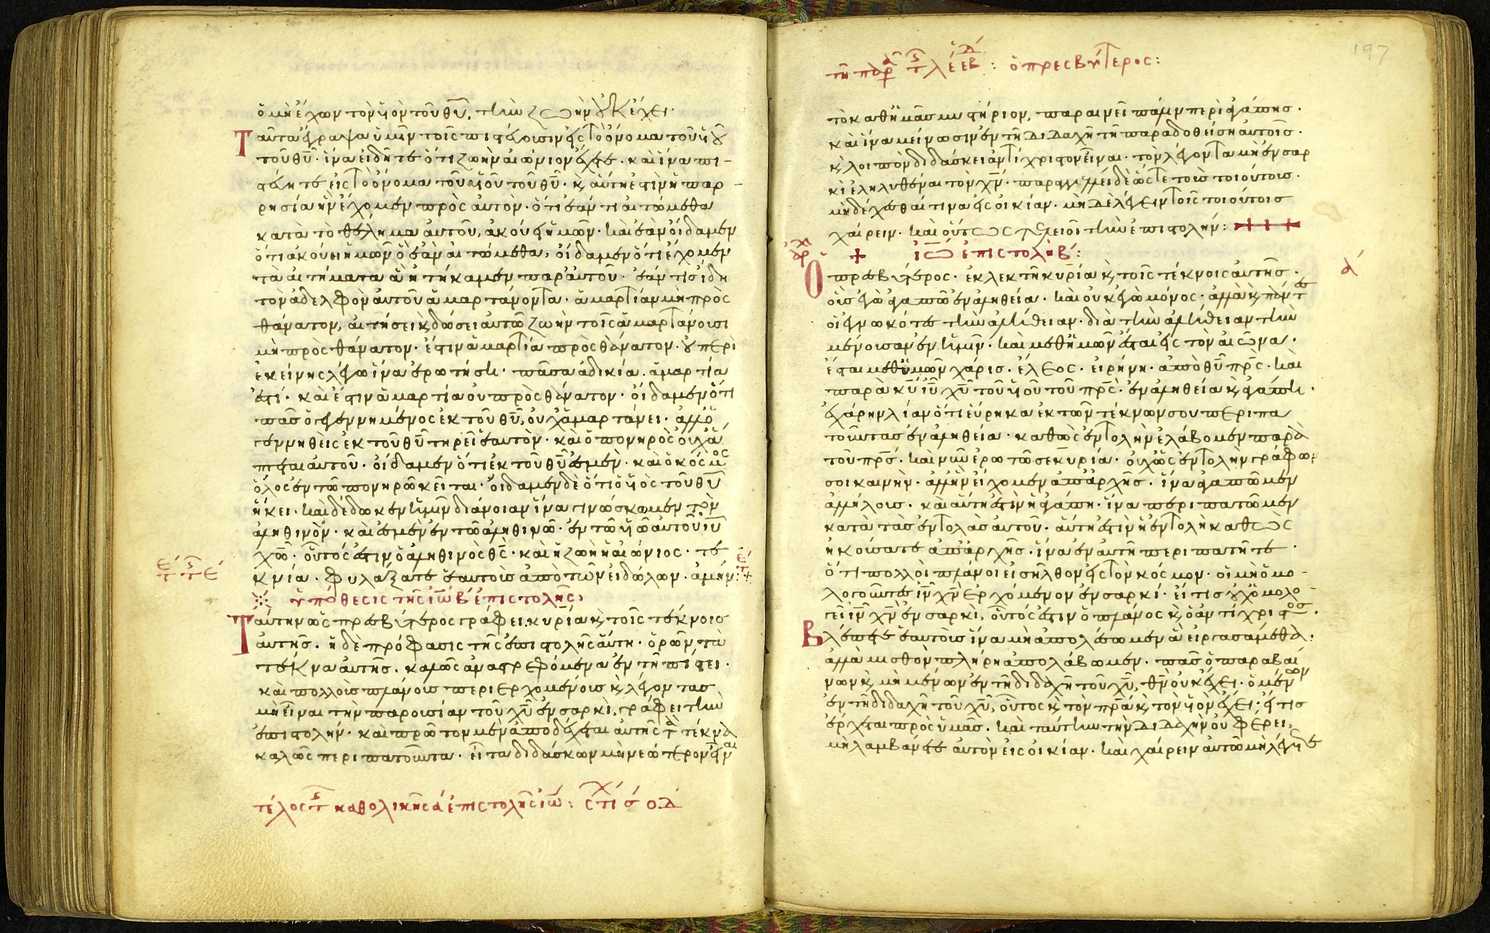 ὁ μὴ ἔχων τὸν υἱὸν τοῦ θυ, τὴν ζωὴν οὐκ ἔχει.
Ταῦτα ἔγραψα ὑμῖν τοῖς πιστεύουσιν εἰς τὸ ὄνομα τοῦ υἱοῦ
τοῦ θυ. ἵνα εἰδῆτε ὅτι ζωὴν αἰώνιον ἔχετε. καὶ ἵνα πι-
στεύητε εἰς τὸ ὄνομα τοῦ υἱοῦ τοῦ θυ. κ αὕτη ἐστὶν ἡ παρ-
ρησία ἣν ἔχομεν πρὸς αὐτόν. ὅτι ἐάν τι αἰτώμεθα
κατὰ τὸ θέλημα αὐτοῦ, ἀκούει ἡμῶν. καὶ ἐὰν οἴδαμεν
ὅτι ἀκούει ἡμῶν ὃ ἐὰν αἰτώμεθα, οἴδαμεν ὅτι ἔχομεν
τὰ αἰτήματα ἃ ᾐτήκαμεν παρ αὐτοῦ. ἐάν τις ἴδη
τὸν ἀδελφὸν αὐτοῦ ἁμαρτάνοντα. ἁμαρτίαν μὴ πρὸς
θάνατον, αἰτήσει κ δώσει αὐτῶ ζωὴν τοῖς ἁμαρτάνουσι
μὴ πρὸς θάνατον. ἔστιν ἁμαρτία πρὸς θάνατον. οὐ περὶ
ἐκείνης λέγω ἵνα ἐρωτήση. πᾶσα ἀδικία, ἁμαρτία
ἐστί. καὶ ἔστιν ἁμαρτία οὐ πρὸς θάνατον. οἴδαμεν ὅτι
πᾶς ὁ γεγεννημένος ἐκ τοῦ θυ, οὐχ ἁμαρτάνει. ἀλλ ὁ
γεννηθεὶς ἐκ τοῦ θυ τηρεῖ ἑαυτόν. καὶ ὁ πονηρὸς οὐχ ἅ
πτεται αὐτοῦ. οἴδαμεν ὅτι ἐκ τοῦ θυ ἐσμέν. καὶ ὁ κόσμος
ὅλος ἐν τῶ πονηρῶ κεῖται. οἴδαμεν δὲ ὅτι ὁ υἱὸς τοῦ θυ
ἥκει. καὶ δέδωκεν ἡμῖν διάνοιαν ἵνα γινώσκωμεν τὸν
ἀληθινόν. καὶ ἐσμὲν ἐν τῶ ἀληθινῶ. ἐν τῶ υἱῶ αὐτοῦ ιυ
χω. οὗτός ἐστιν ὁ ἀληθινὸς θς. καὶ ἡ ζωὴ ἡ αἰώνιος. τε
κνία. φυλάξατε ἑαυτοὺς ἀπὸ τῶν εἰδώλων. ἀμήν:
ὑπόθεσις τῆς ιω β ἐπιστολῆς
Ταύτην ὡς πρεσβύτερος γράφει, κυρία κ τοῖς τέκνοις
αὐτῆς. ἡ δὲ πρόφασις τῆς ἐπιστολῆς αὕτη. ὁρῶν τὰ
τέκνα αὐτῆς. καλῶς ἀναστρεφόμενα ἐν τῆ πίστει.
καὶ πολλοὺς πλάνους περιερχομένους κ λέγοντας
μὴ εἶναι τὴν παρουσίαν τοῦ χυ ἐν σαρκὶ, γράφει τὴν
ἐπιστολήν. καὶ πρῶτον μὲν ἀποδέχεται αὐτῆς τὰ τέκνα
καλῶς περιπατοῦντα. εἶτα διδάσκων μὴ νεώτερον εἶναι
τέλος τ καθολικῆς α ἐπιστολῆς ιω: στι σοδ
τῆ παρ τ λε εβ: ὁ πρεσβύτερος:
197
τὸ καθ ἡμᾶς μυστήριον, παραινεῖ πάλιν περὶ ἀγάπης.
καὶ ἵνα μείνωσιν ἐν τῆ διδαχῆ τῆ παραδοθείση αὐτοῖς.
κ λοιπὸν διδάσκει ἀντίχριστον εἶναι. τὸν λέγοντα μὴ ἐν σαρ
κὶ ἐληλυθέναι τὸν χν. παραγγέλλει δὲ ὥστε τοὺς τοιούτους.
μὴ δέχεσθαί τινα εἰς οἰκίαν. μηδὲ λέγειν τοῖς τοιούτοις
χαίρειν. καὶ οὕτως τελειοῖ τὴν ἐπιστολήν:
ιω ἐπιστολὴ β:
Ὁ πρεσβύτερος. ἐκλεκτῆ κυρία κ τοῖς τέκνοις αὐτῆς.
οὓς ἐγὼ ἀγαπῶ ἐν ἀληθεία. καὶ οὐκ ἐγὼ μόνος. ἀλλὰ κ πάντες
οἱ ἐγνωκότες τὴν ἀλήθειαν. διὰ τὴν ἀλήθειαν τὴν
μένουσαν ἐν ἡμῖν. καὶ μεθ ἡμῶν ἔσται εἰς τὸν αἰῶνα.
ἔσται μεθ ἡμῶν χάρις. ἔλεος. εἰρήνη. ἀπὸ θυ πρς. καὶ
παρὰ κυ ιυ χυ τοῦ υἱοῦ τοῦ πρς. ἐν ἀληθεία κ ἀγάπη.
ἐχάρην λίαν ὅτι εὕρηκα ἐκ τῶν τέκνων σου περιπα
τοῦντας ἐν ἀληθεία. καθὼς ἐντολὴν ἐλάβομεν παρὰ
τοῦ πρς. καὶ νῦν ἐρωτῶ σε κυρία. οὐχ ὡς ἐντολὴν γράφων
σοι καινὴν. ἀλλ ἣν εἴχομεν ἀπ ἀρχῆς. ἵνα ἀγαπῶμεν
ἀλλήλους. καὶ αὕτη ἐστὶν ἡ ἀγάπη. ἵνα περιπατῶμεν
κατὰ τὰς ἐντολὰς αὐτοῦ. αὕτη ἐστὶν ἡ ἐντολὴ καθὼς
ἠκούσατε ἀπ ἀρχῆς. ἵνα ἐν αὐτῆ περιπατῆτε.
ὅτι πολλοὶ πλάνοι εἰσῆλθον εἰς τὸν κόσμον. οἱ μὴ ὁμο-
λογοῦντες ιν χν ἐρχόμενον ἐν σαρκί. εἴ τις οὐχ ὁμολο-
γεῖ ιν χν ἐν σαρκὶ, οὗτός ἐστιν ὁ πλάνος κ ὁ ἀντίχριστος.
Βλέπετε ἑαυτοὺς ἵνα μὴ ἀπολέσωμεν ἃ εἰργασάμεθα.
ἀλλὰ μισθὸν πλήρη ἀπολάβωμεν. πᾶς ὁ παραβαί
νων κ μὴ μένων ἐν τῆ διδαχῆ τοῦ χυ, θν οὐκ ἔχει. ὁ μένων
ἐν τῆ διδαχῆ τοῦ χυ, οὗτος κ τὸν πρα κ τὸν υἱὸν ἔχει. εἴ τις
ἔρχεται πρὸς ὑμᾶς. καὶ ταύτην τὴν διδαχὴν οὐ φέρει,
μὴ λαμβάνετε αὐτὸν εἰς οἰκίαν. καὶ χαίρειν αὐτῶ μὴ λέγετε